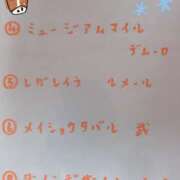 ④ ミュージアムマイル
デムーロ
⑤ レガレイラ ルメール
⑥ メイショウタバル 武